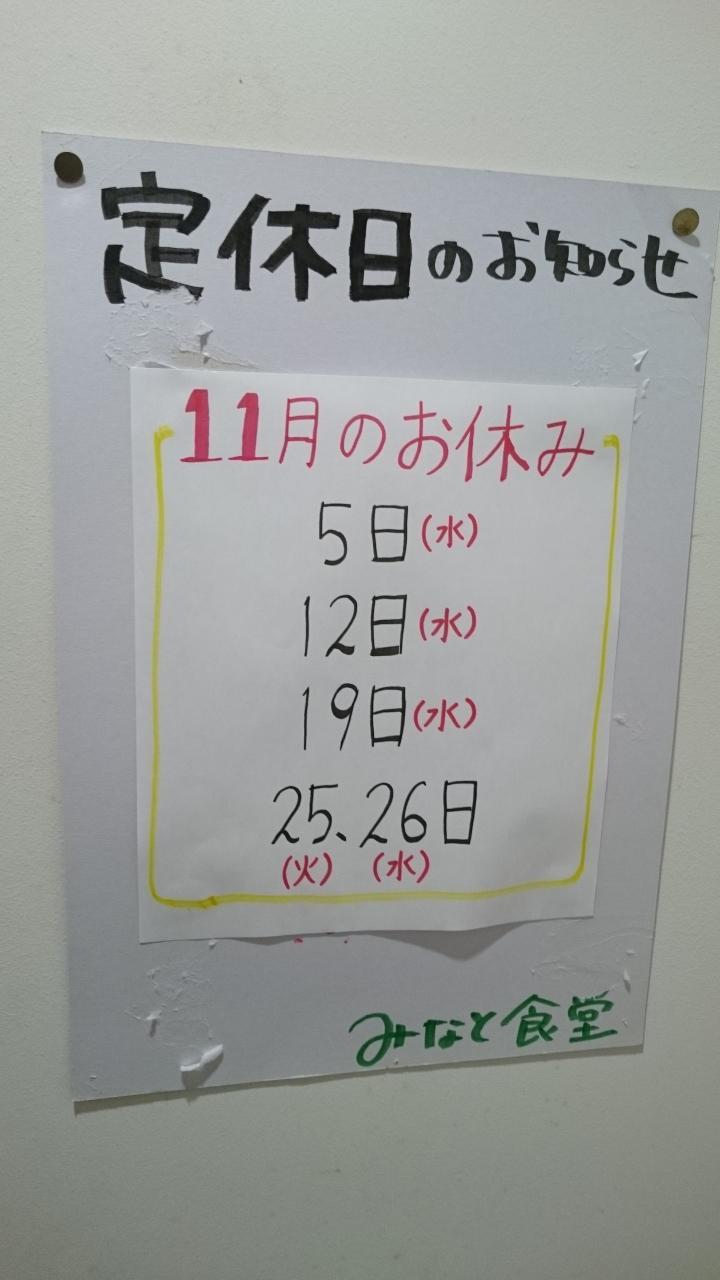 定休日のお知らせ
11月のお休み
5日(水)
12日(水)
19日(水)
25、26日
(火) (水)
みなと食堂